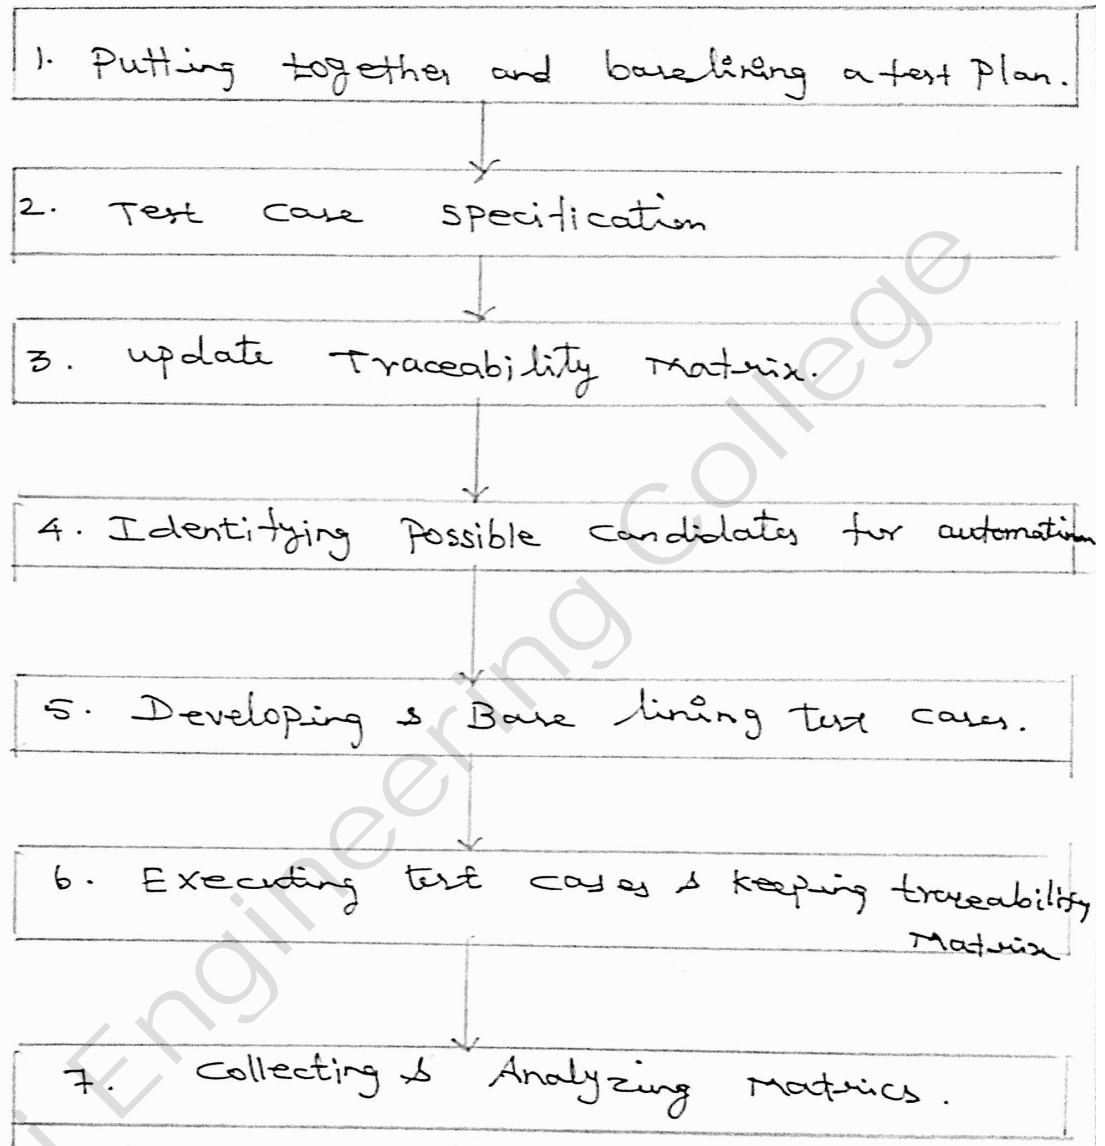 1. Putting together and baselining a test Plan.
2. Test case specification
3. update Traceability Matrix.
4. Identifying Possible candidates for automation
5. Developing & Base lining test cases.
6. Executing test cases & keeping traceability
Matrix
7. Collecting & Analyzing Matrics.
Engineering College